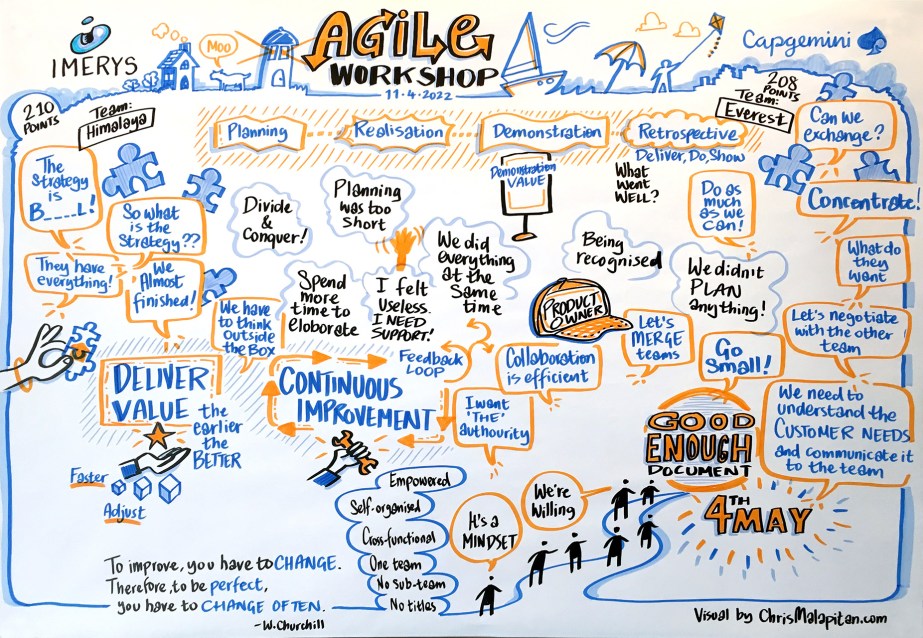 IMERYS
MOO
AGiLe
WORKSHOP
11·4·2022
Capgemini
210
POINTS
Team:
Himalaya
208
POINTS
Team:
Everest
Planning
Realisation
Demonstration
Retrospective
Deliver, Do, Show
The
Strategy
is
B____L!
So what
is the
Strategy??
They have
everything!
We
Almost
finished!
We have
to think
outside
the Box
Divide
&
Conquer!
Planning
was too
short
Spend
more
time to
eloborate
I felt
useless.
I NEED
SUPPORT!
We did
everything
at the
Same
time
Demonstration
VALUE
What
went
WELL?
Being
recognised
Do as
much
as we
Can!
We didn't
PLAN
anything!
Can we
exchange?
Concentrate!
What do
they
want
Let's negotiate
with the other
team
PRODUCT
OWNER
Let's
MERGE
teams
Go
Small!
We need to
understand the
CUSTOMER NEEDS
and communicate it
to the team
Feedback
LOOP
Collaboration
is efficient
I want
'THE'
authourity
DELIVER
VALUE
the
earlier
the
BETTER
Faster
Adjust
CONTINUOUS
IMPROVEMENT
Empowered
Self-organised
Cross-functional
One team
No sub-team
No titles
It's a
MINDSET
We're
Willing
GOOD
ENOUGH
DOCUMENT
4TH
MAY
To improve, you have to CHANGE.
Therefore, to be perfect,
you have to CHANGE OFTEN.
-W.Churchill
Visual by ChrisMalapitan.com